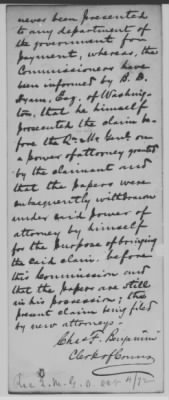 never been presented
to any department of
the government for
payment, whereas, the
Commissioners have
been informed by B. D.
Hyam, Esq. of Washing-
ton, that he himself
presented the claim be-
fore the Qr. Mr. Genl. on
a power of attorney granted
by the claimant and
that the papers were
subsequently withdrawn
under said power of
attorney by himself
for the purpose of bringing
the said claim before
this Commission and
that the papers are still
in his possession; the
present claim being filed
by new attorneys.
Chas F. Benjamin
Clerk of Comrs
Q. M. G. O.